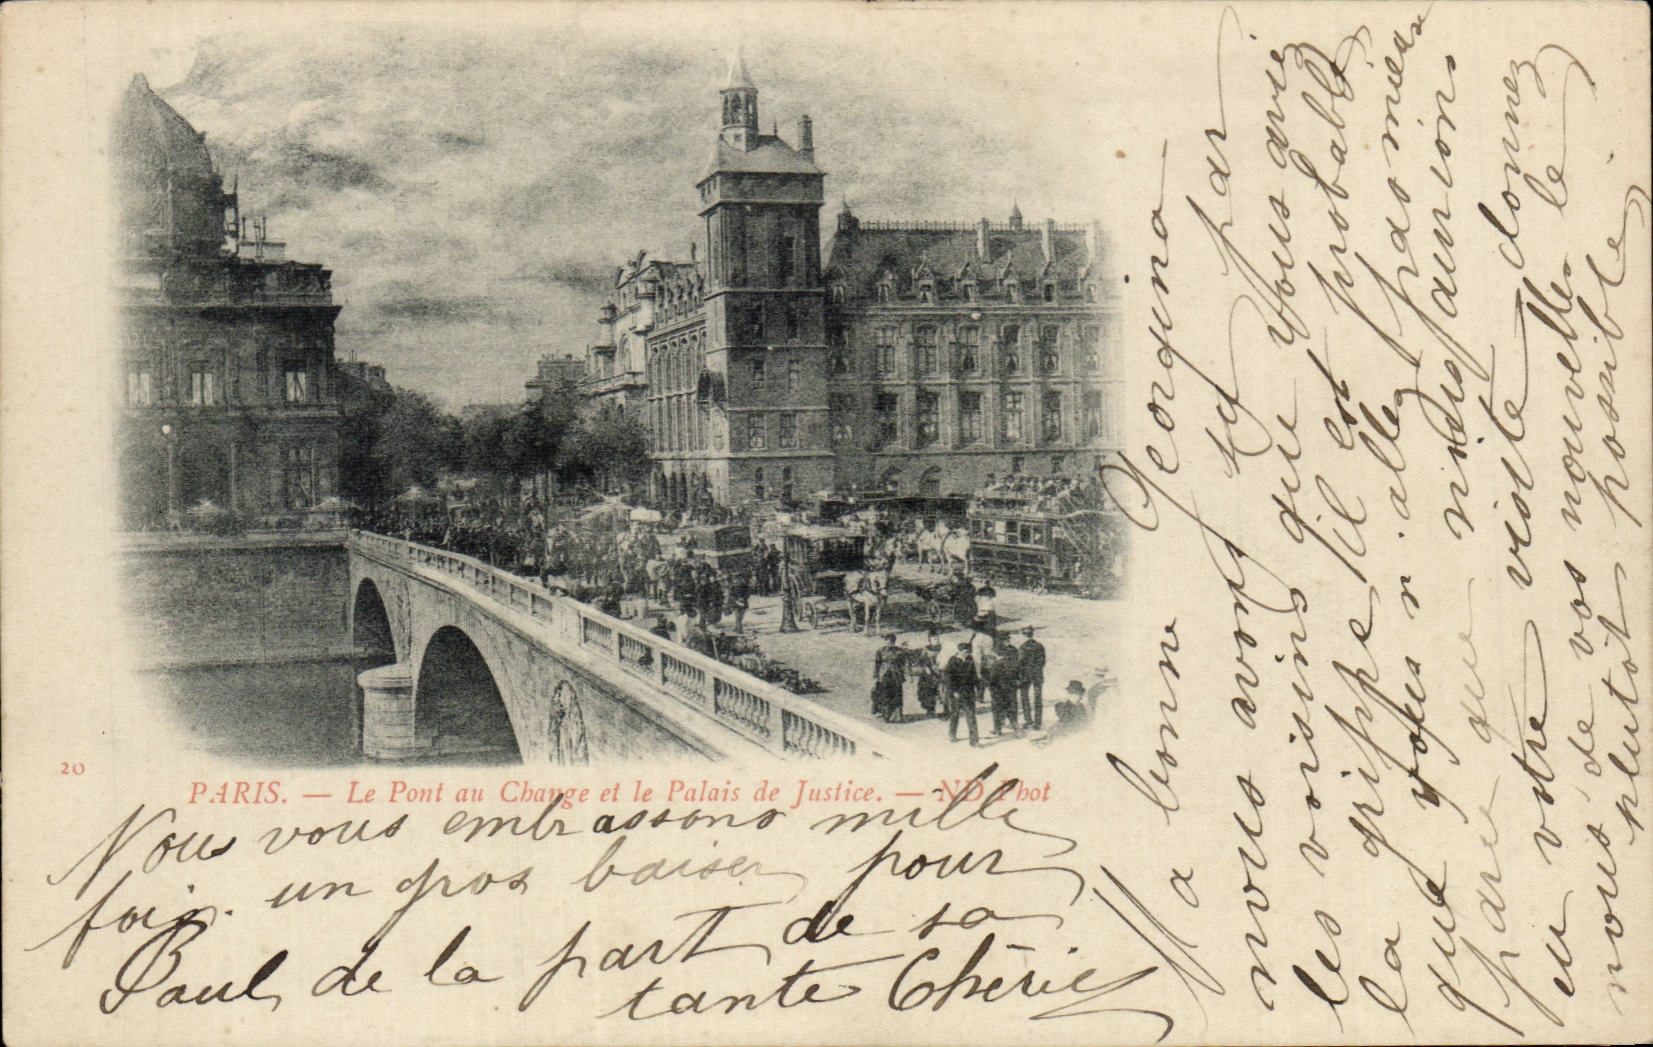 20
PARIS. — Le Pont au Change et le Palais de Justice. — ND Phot
Ma bonne Georgina
nous avons su par
les voisins que vous avié
la grippe s'il est probable
que vous n'allez pas mieux
parce que nous aurions
eu votre visite donnez
nous de vos nouvelles le
plutot possible
Nous vous embrassons mille
fois. un gros baiser pour
Paul de la part de sa
tante Chérie